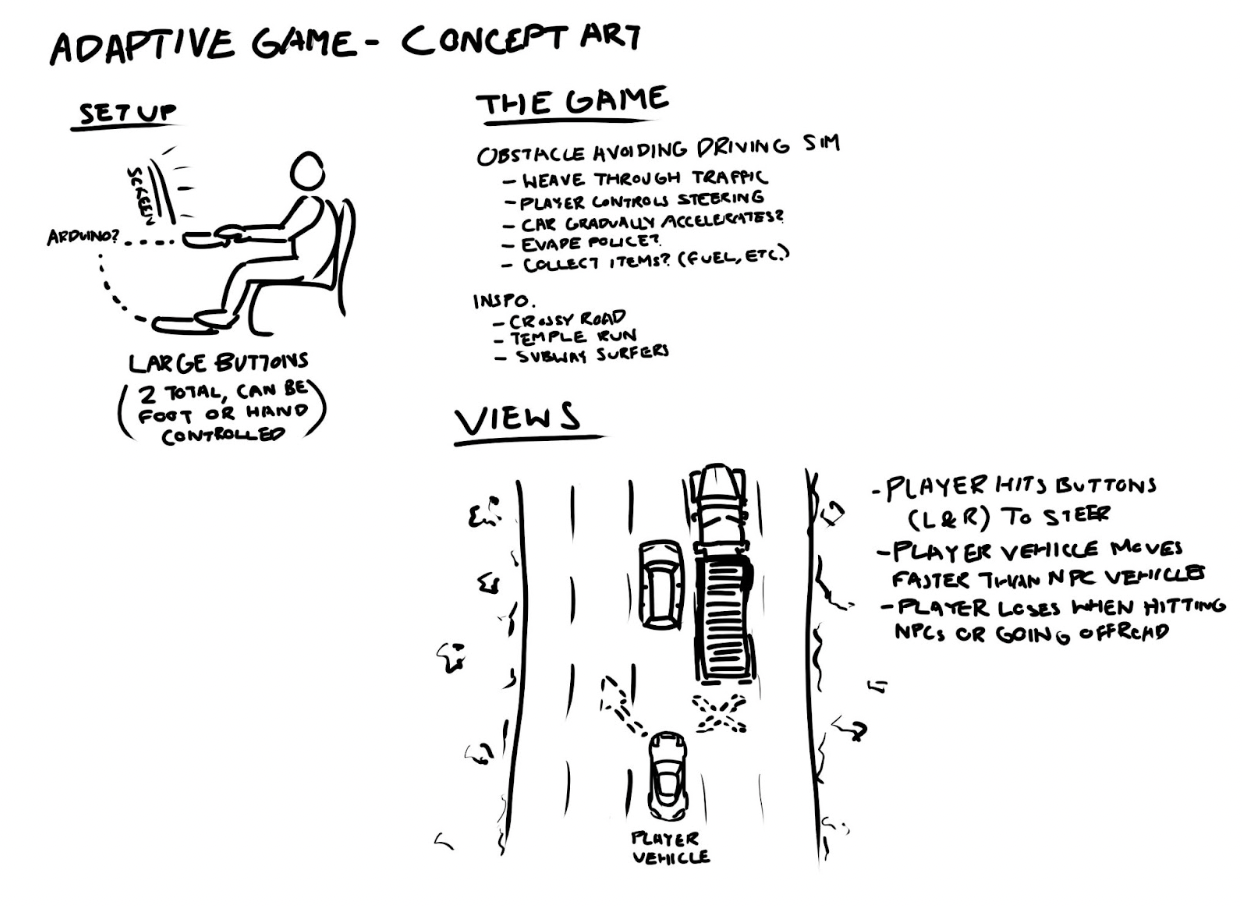 ADAPTIVE GAME - CONCEPT ART
SETUP
SCREEN
ARDUINO?
LARGE BUTTONS
(2 TOTAL, CAN BE
FOOT OR HAND
CONTROLLED)
THE GAME
OBSTACLE AVOIDING DRIVING SIM
- WEAVE THROUGH TRAFFIC
- PLAYER CONTROLS STEERING
- CAR GRADUALLY ACCELERATES?
- EVADE POLICE?
- COLLECT ITEMS? (FUEL, ETC.)
INSPO.
- CROSSY ROAD
- TEMPLE RUN
- SUBWAY SURFERS
VIEWS
- PLAYER HITS BUTTONS
(L & R) TO STEER
- PLAYER VEHICLE MOVES
FASTER THAN NPC VEHICLE
- PLAYER LOSES WHEN HITTING
NPCS OR GOING OFFROAD
PLAYER
VEHICLE